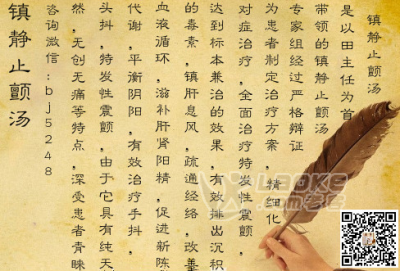 镇静止颤汤
是以田主任为首
带领的镇静止颤汤
专家组经过严格辩证
为患者制定治疗方案,精细化
对症治疗,全面治疗特发性震颤,
达到标本兼治的效果,有效排出沉积
的毒素,镇肝息风,疏通经络,改善
血液循环,滋补肝肾阳精,促进新陈
代谢,平衡阴阳,有效治疗手抖,
头抖,特发性震颤,由于它具有纯天
然,无创无痛等特点,深受患者青睐
咨询微信:bj5248
镇静止颤汤